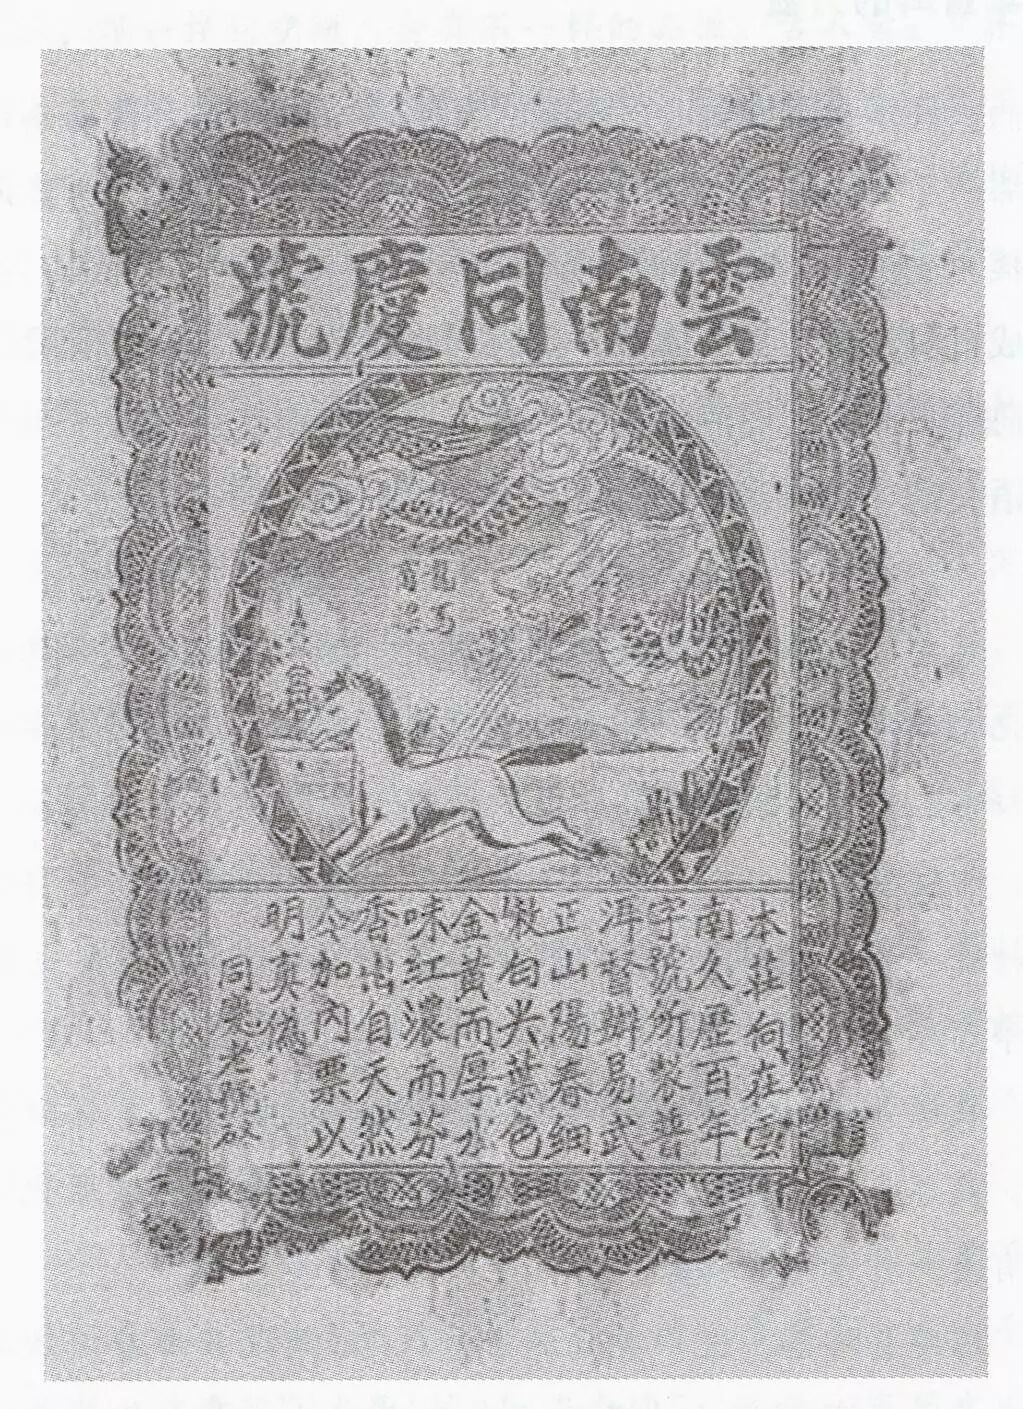 雲南同慶號
龍馬
商標
本莊向在雲
南久歷百年
字號所製普
洱督辦易武
正山陽春細
嫩白尖葉色
金黃而厚水
味紅濃而芬
香出自天然
今加內票以
明真偽
同慶老號啟